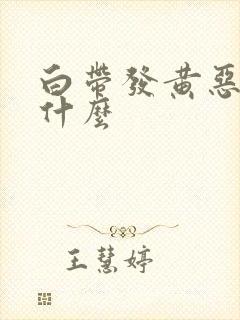 白带發黄惡
什麼
王慧婷